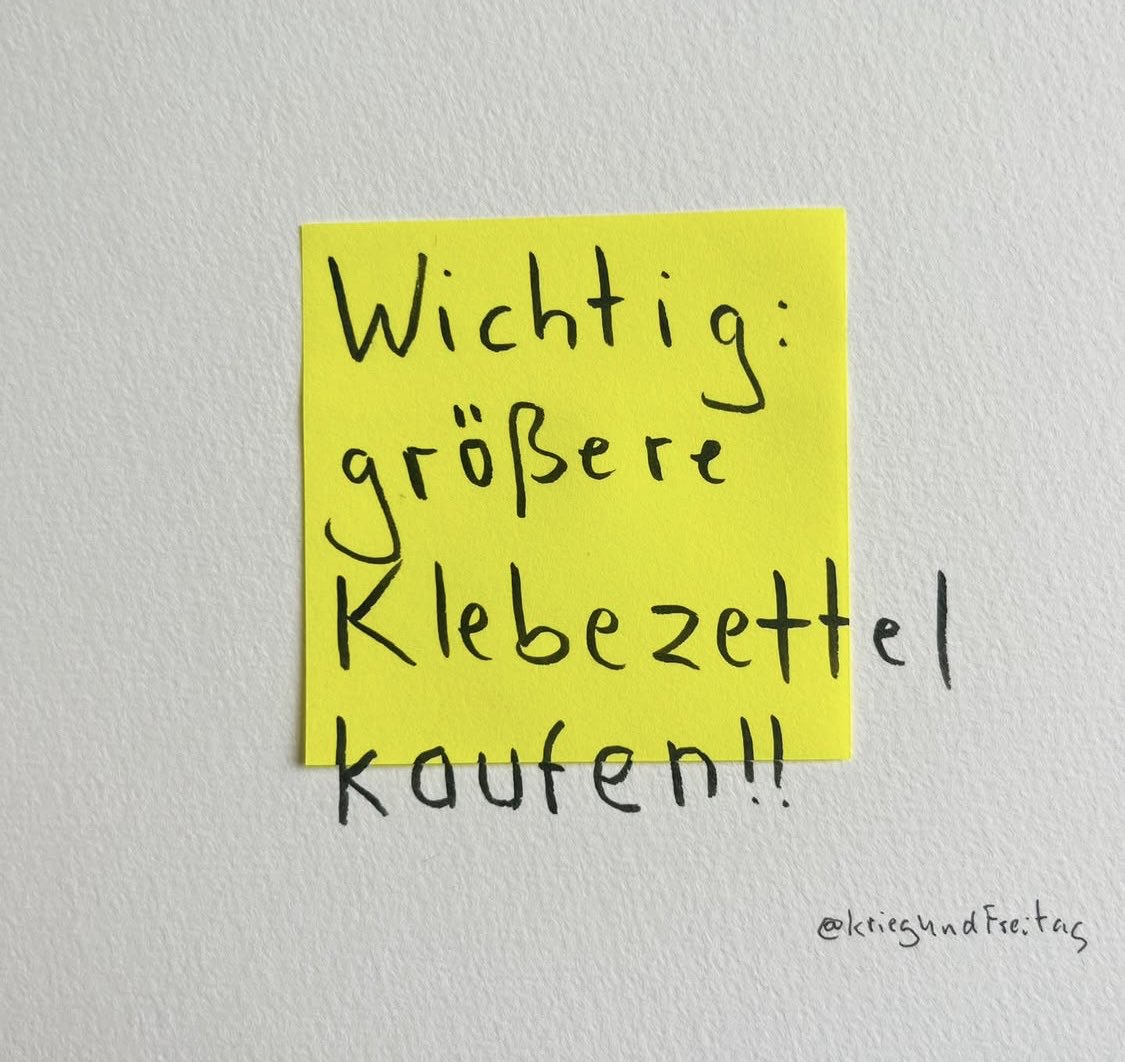 Wichtig:
größere
Klebezettel
kaufen!!
@kriegundFreitag